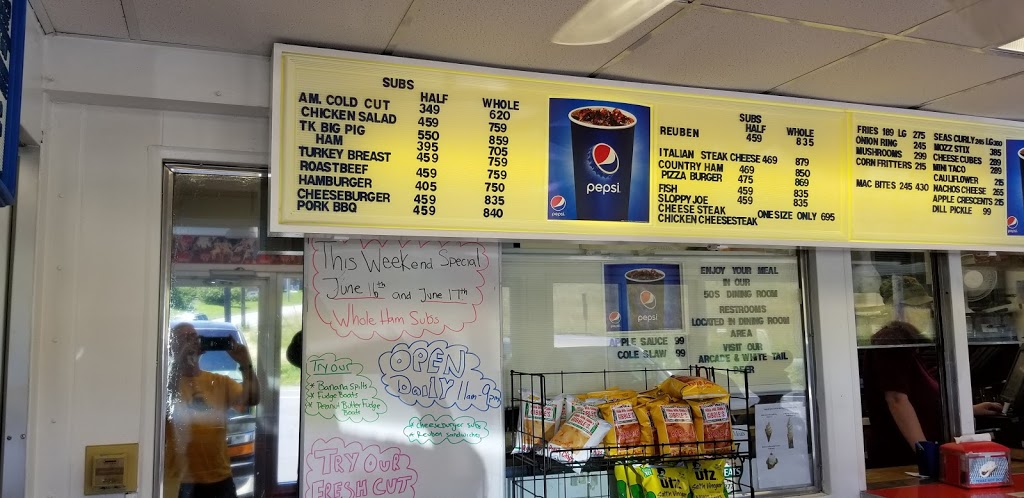 SUBS
HALF WHOLE
AM. COLD CUT 349 620
CHICKEN SALAD 459 759
TK BIG PIG 550 859
HAM 395 705
TURKEY BREAST 459 759
ROAST BEEF 459 759
HAMBURGER 405 750
CHEESEBURGER 459 835
PORK BBQ 459 840
pepsi
pepsi
SUBS
HALF WHOLE
REUBEN 459 835
ITALIAN STEAK CHEESE 469 879
COUNTRY HAM 469 850
PIZZA BURGER 475 869
FISH 459 835
SLOPPY JOE 459 835
CHEESE STEAK
CHICKEN CHEESESTEAK ONE SIZE ONLY 695
FRIES 189 LG 275
ONION RING 245
MUSHROOMS 299
CORN FRITTERS 215
MAC BITES 245 430
SEAS CURLY 245 LG
MOZZ STIX 385
CHEESE CUBES 289
MINI TACO 289
CAULIFLOWER 215
NACHOS CHEESE 265
APPLE CRESCENTS 215
DILL PICKLE 99
This Weekend Special
June 16th and June 17th
Whole Ham Subs
Try our
* Banana Splits
* Fudge Boats
* Peanut Butter Fudge
Boats
OPEN
Daily 11am-9pm
* Cheeseburger subs
* Reuben Sandwiches
TRY OUR
FRESH CUT
pepsi
APPLE SAUCE 99
COLE SLAW 99
ENJOY YOUR MEAL
IN OUR
50'S DINING ROOM
RESTROOMS
LOCATED IN DINING ROOM
AREA
VISIT OUR
ARCADE & WHITE TAIL
DEER
Utz